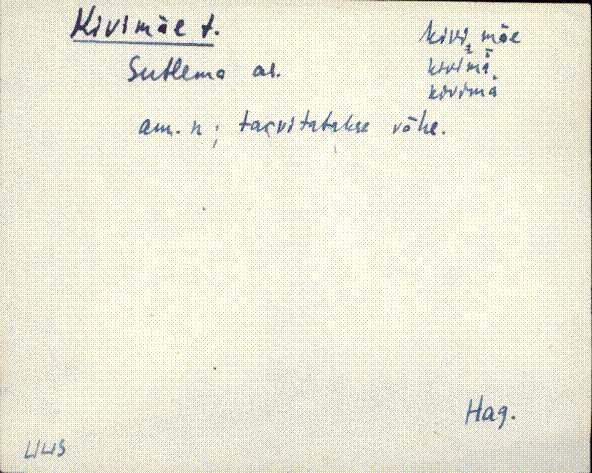 Kivimäe t.
kivi, mäe
kivimä
kivimä
Sutlema as.
am. n; tarvitatakse vähe.
Hag.